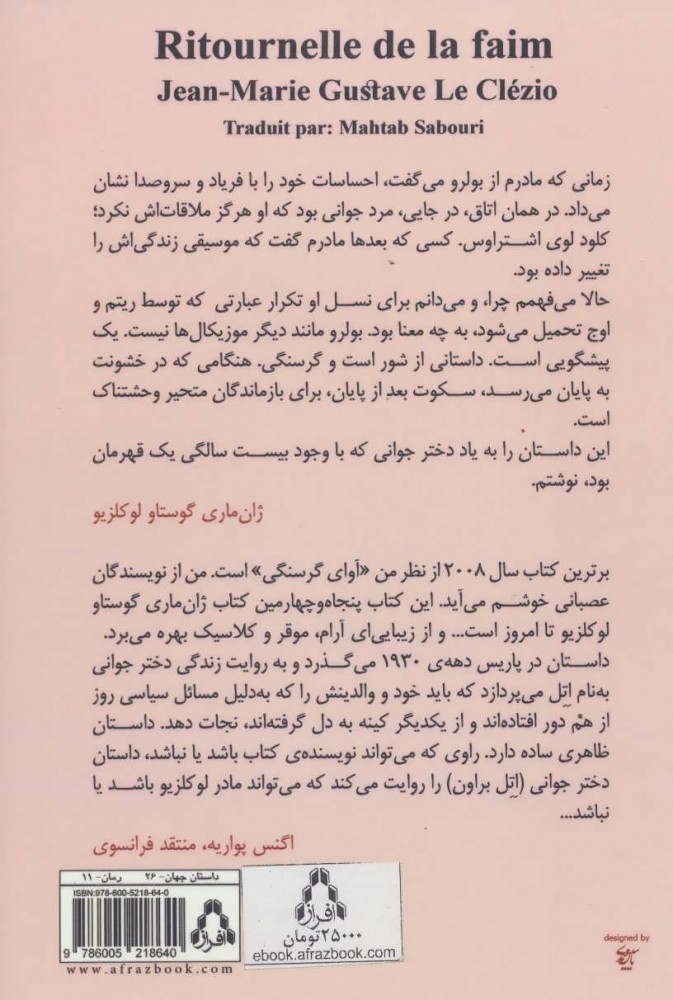 Ritournelle de la faim
Jean-Marie Gustave Le Clézio
Traduit par: Mahtab Sabouri
زمانی که مادرم از بولرو می‌گفت، احساسات خود را با فریاد و سروصدا نشان
می‌داد. در همان اتاق، در جایی، مرد جوانی بود که او هرگز ملاقات‌اش نکرد؛
کلود لوی اشتراوس. کسی که بعدها مادرم گفت که موسیقی زندگی‌اش را
تغییر داده بود.
حالا می‌فهمم چرا، و می‌دانم برای نسل او تکرار عبارتی که توسط ریتم و
اوج تحمیل می‌شود، به چه معنا بود. بولرو مانند دیگر موزیکال‌ها نیست. یک
پیشگویی است. داستانی از شور است و گرسنگی. هنگامی که در خشونت
به پایان می‌رسد، سکوت بعد از پایان، برای بازماندگان متحیر وحشتناک
است.
این داستان را به یاد دختر جوانی که با وجود بیست سالگی یک قهرمان
بود، نوشتم.
ژان‌ماری گوستاو لوکلزیو
برترین کتاب سال ۲۰۰۸ از نظر من «آوای گرسنگی» است. من از نویسندگان
عصبانی خوشم می‌آید. این کتاب پنجاه‌وچهارمین کتاب ژان‌ماری گوستاو
لوکلزیو تا امروز است... و از زیبایی‌ای آرام، موقر و کلاسیک بهره می‌برد.
داستان در پاریس دهه‌ی ۱۹۳۰ می‌گذرد و به روایت زندگی دختر جوانی
به‌نام اِتل می‌پردازد که باید خود و والدینش را که به‌دلیل مسائل سیاسی روز
از هم دور افتاده‌اند و از یکدیگر کینه به دل گرفته‌اند، نجات دهد. داستان
ظاهری ساده دارد. راوی که می‌تواند نویسنده‌ی کتاب باشد یا نباشد، داستان
دختر جوانی (اِتل براون) را روایت می‌کند که می‌تواند مادر لوکلزیو باشد یا
نباشد...
اگنس پواریه، منتقد فرانسوی
داستان جهان- ۲۶ رمان- ۱۱
ISBN:978-600-5218-64-0
9 786005 218640
افراز
www.afrazbook.com
افراز
۲۵۰۰۰تومان
ebook.afrazbook.com
designed by